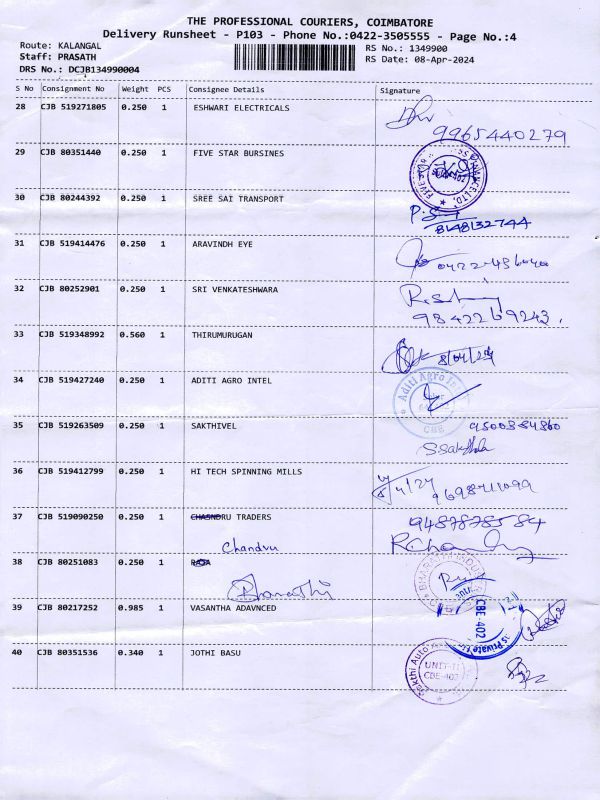 THE PROFESSIONAL COURIERS, COIMBATORE
Delivery Runsheet - P103 - Phone No.:0422-3505555 - Page No.:4
Route: KALANGAL RS No.: 1349900
Staff: PRASATH RS Date: 08-Apr-2024
DRS No.: DCJB134990004
S No Consignment No Weight PCS Consignee Details Signature
28 CJB 519271805 0.250 1 ESHWARI ELECTRICALS
9965440279
29 CJB 80351440 0.250 1 FIVE STAR BURSINES
30 CJB 80244392 0.250 1 SREE SAI TRANSPORT
8148132744
31 CJB 519414476 0.250 1 ARAVINDH EYE
32 CJB 80252901 0.250 1 SRI VENKATESHWARA
9842269243.
33 CJB 519348992 0.560 1 THIRUMURUGAN
8/04/24
34 CJB 519427240 0.250 1 ADITI AGRO INTEL
Aditi Agro
CBE
35 CJB 519263509 0.250 1 SAKTHIVEL
9500384860
36 CJB 519412799 0.250 1 HI TECH SPINNING MILLS
37 CJB 519090250 0.250 1 CHASNDRU TRADERS
Chandru
9487878584
38 CJB 80251083 0.250 1
Bharathi
39 CJB 80217252 0.985 1 VASANTHA ADAVNCED
CBE-402
40 CJB 80351536 0.340 1 JOTHI BASU
Sakthi Auto
UNIT-II
CBE-402